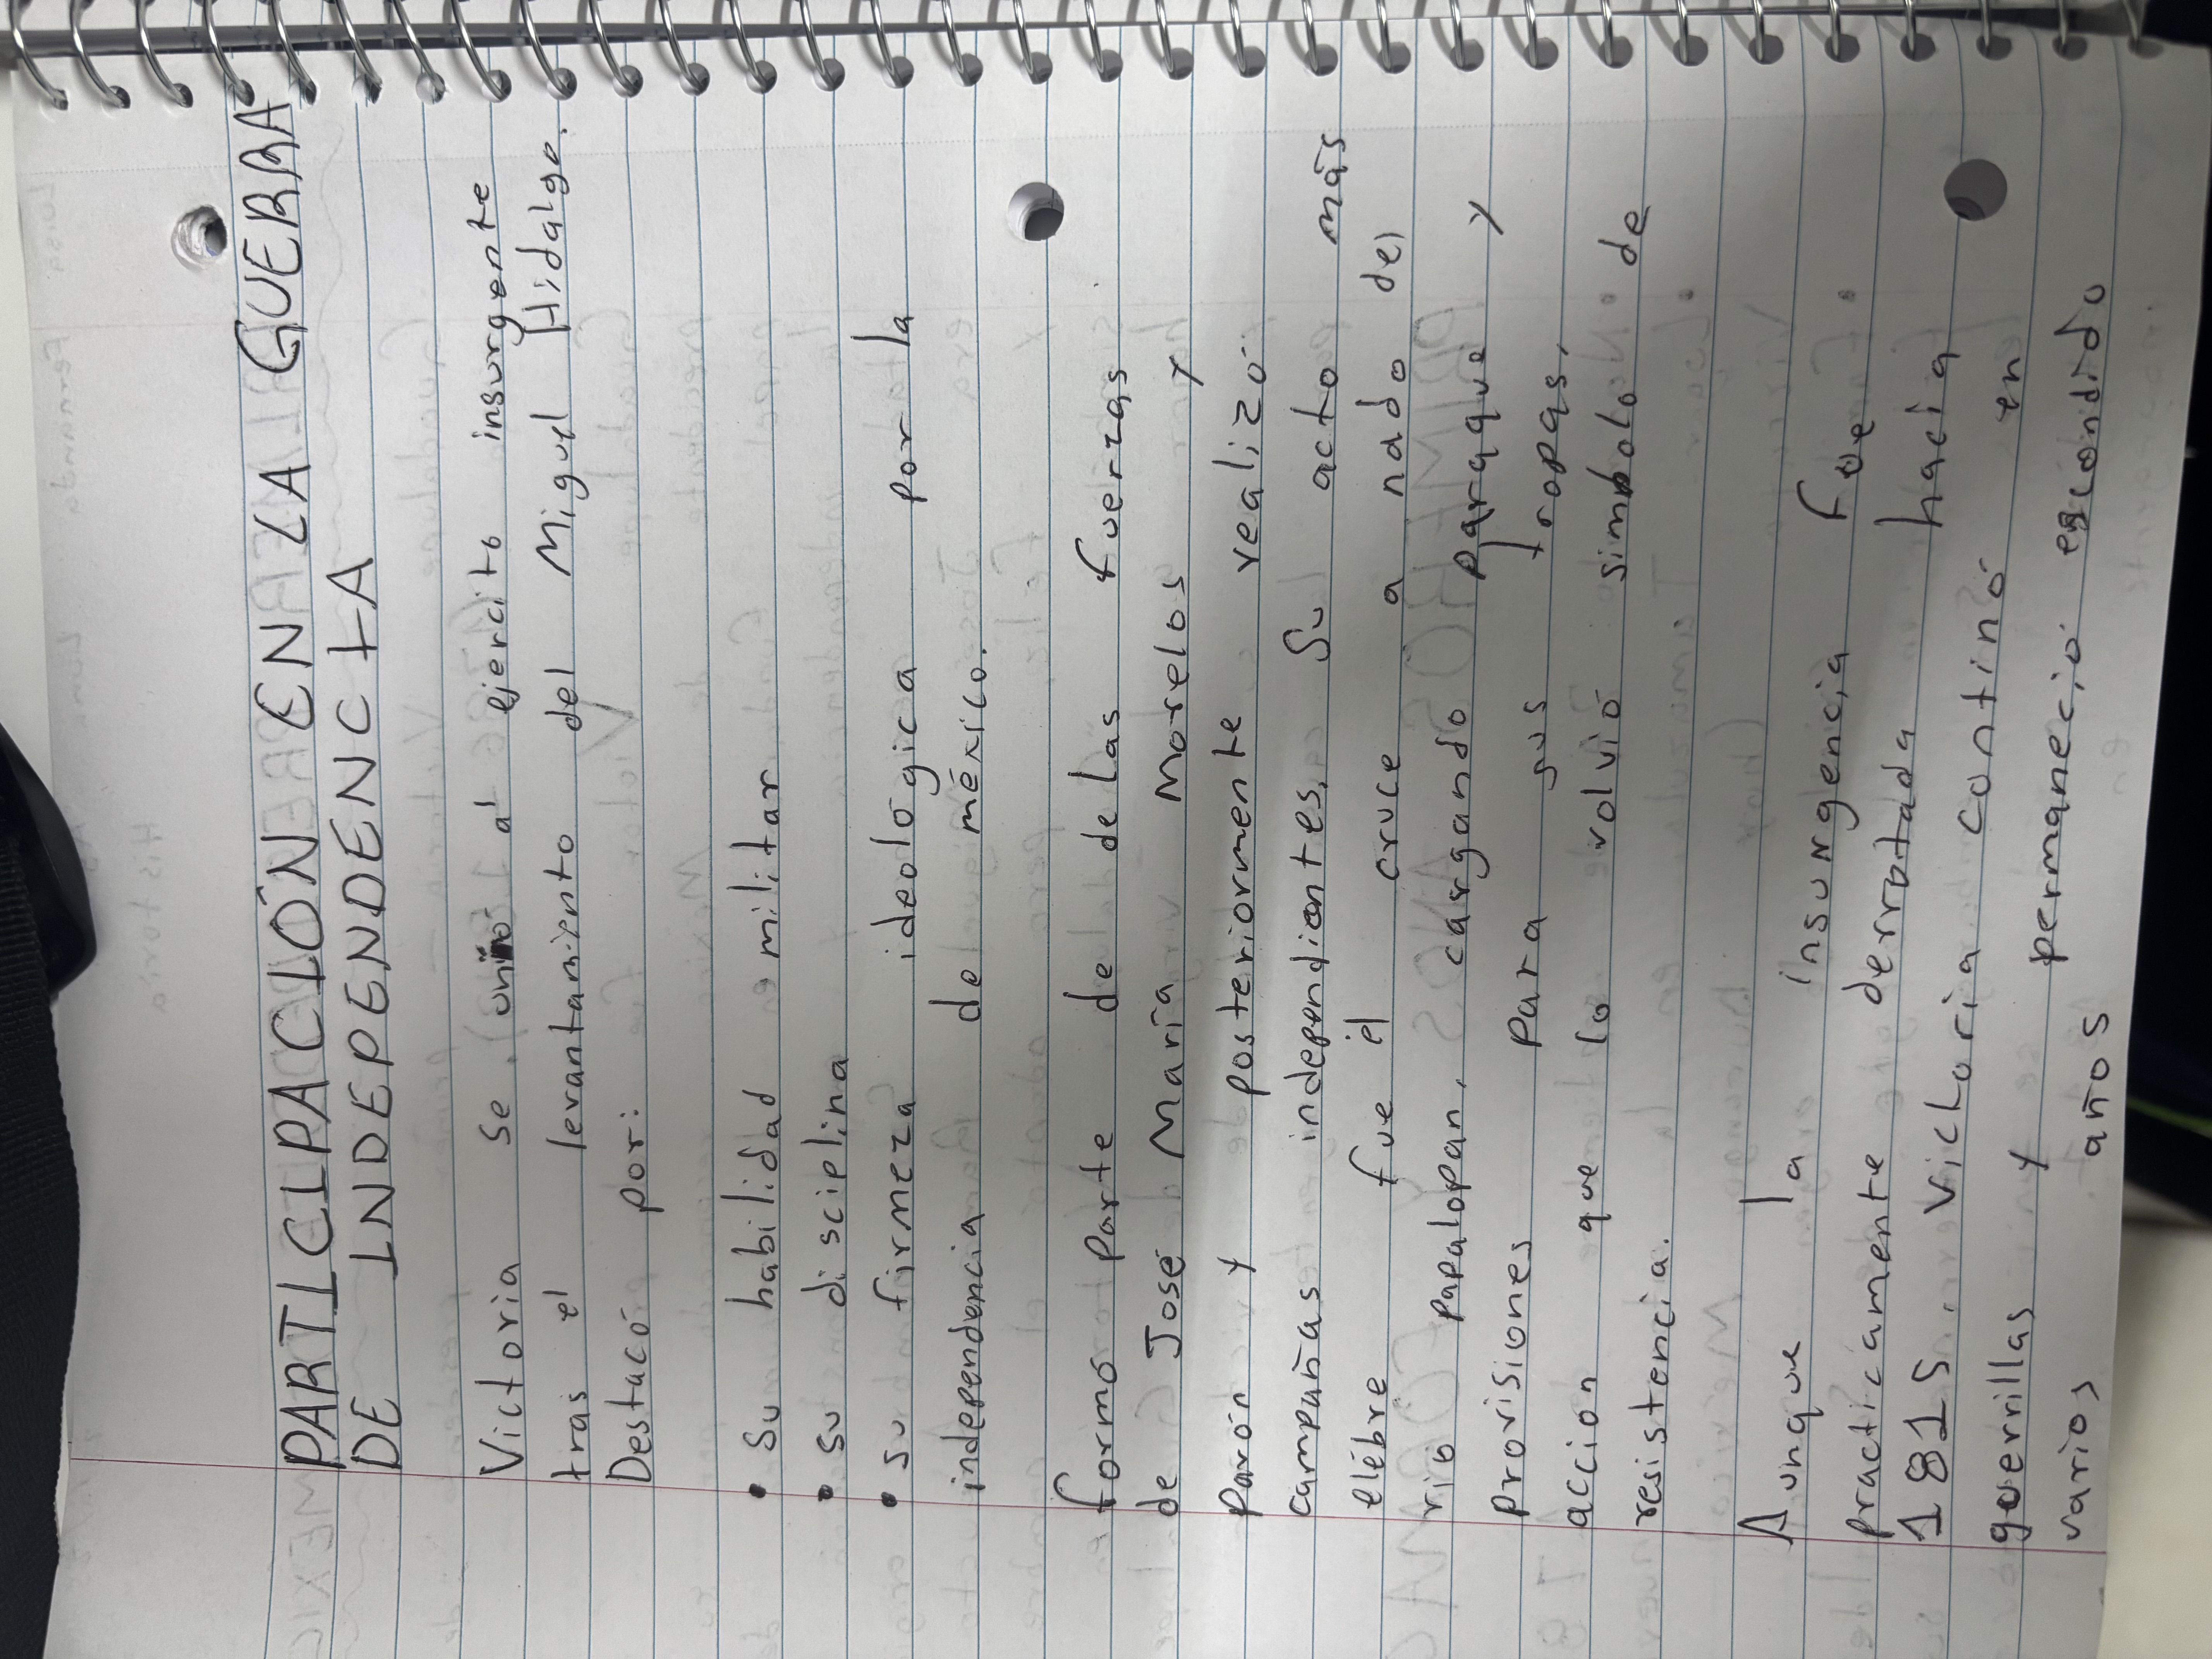 PARTICIPACIÓN EN LA GUERRA
DE INDEPENDENCIA
Victoria se unio al ejercito insurgente
tras el levantamiento del Miguel Hidalgo.
Destacó por:
• Su habilidad militar
• Su disciplina
• su firmeza ideologica por la
independencia de méxico.
formó parte de delas fuerzas
de José María Morelos y
Pavón y posteriormente realizó
campañas independientes. Su acto más
elébre fue el cruce a nado del
rio papalopan, cargando paraque y
provisiones para sus tropas,
accion que lo volvió simbolo de
resistencia.
Aunque la insurgencia fue
practicamente derrotada hacia
1815. victoria continó en
guerrillas y permaneció escondido
varios años